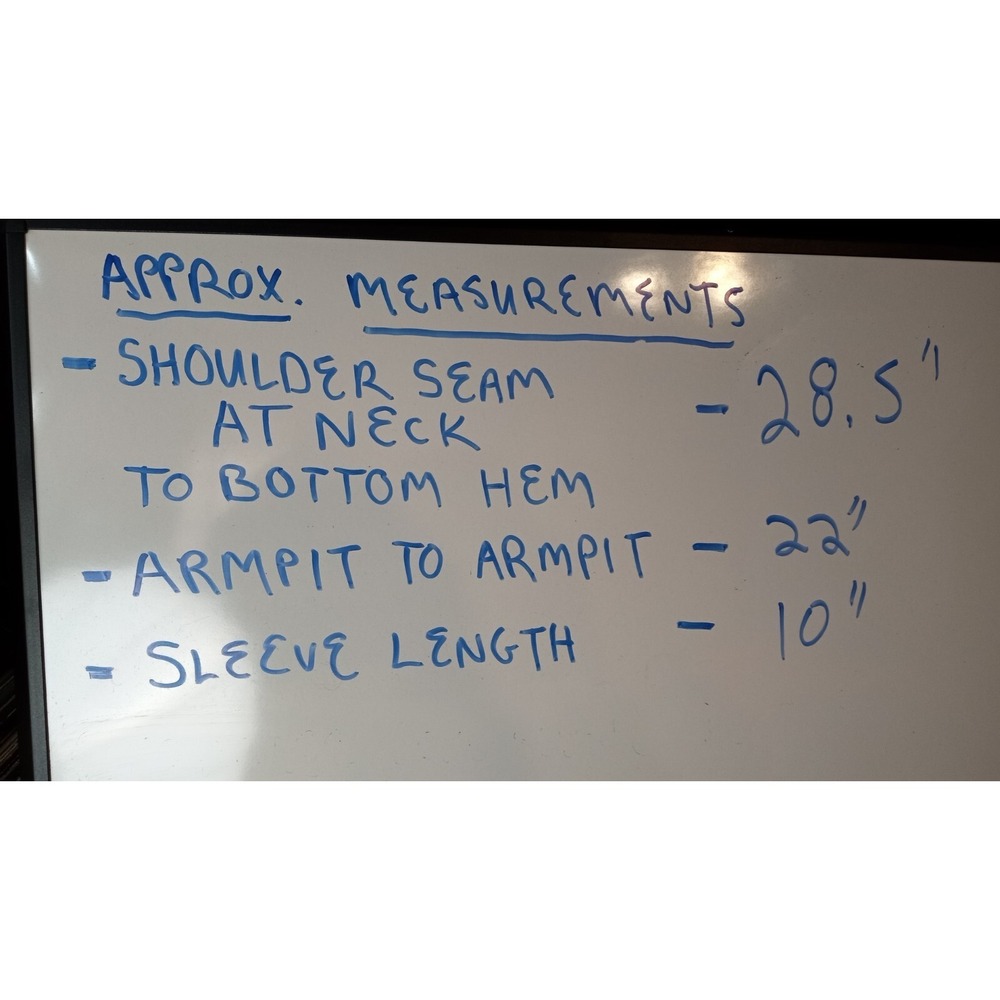 APPROX. MEASUREMENTS
- SHOULDER SEAM
AT NECK - 28.5"
TO BOTTOM HEM
- ARMPIT TO ARMPIT - 22"
- SLEEVE LENGTH - 10"